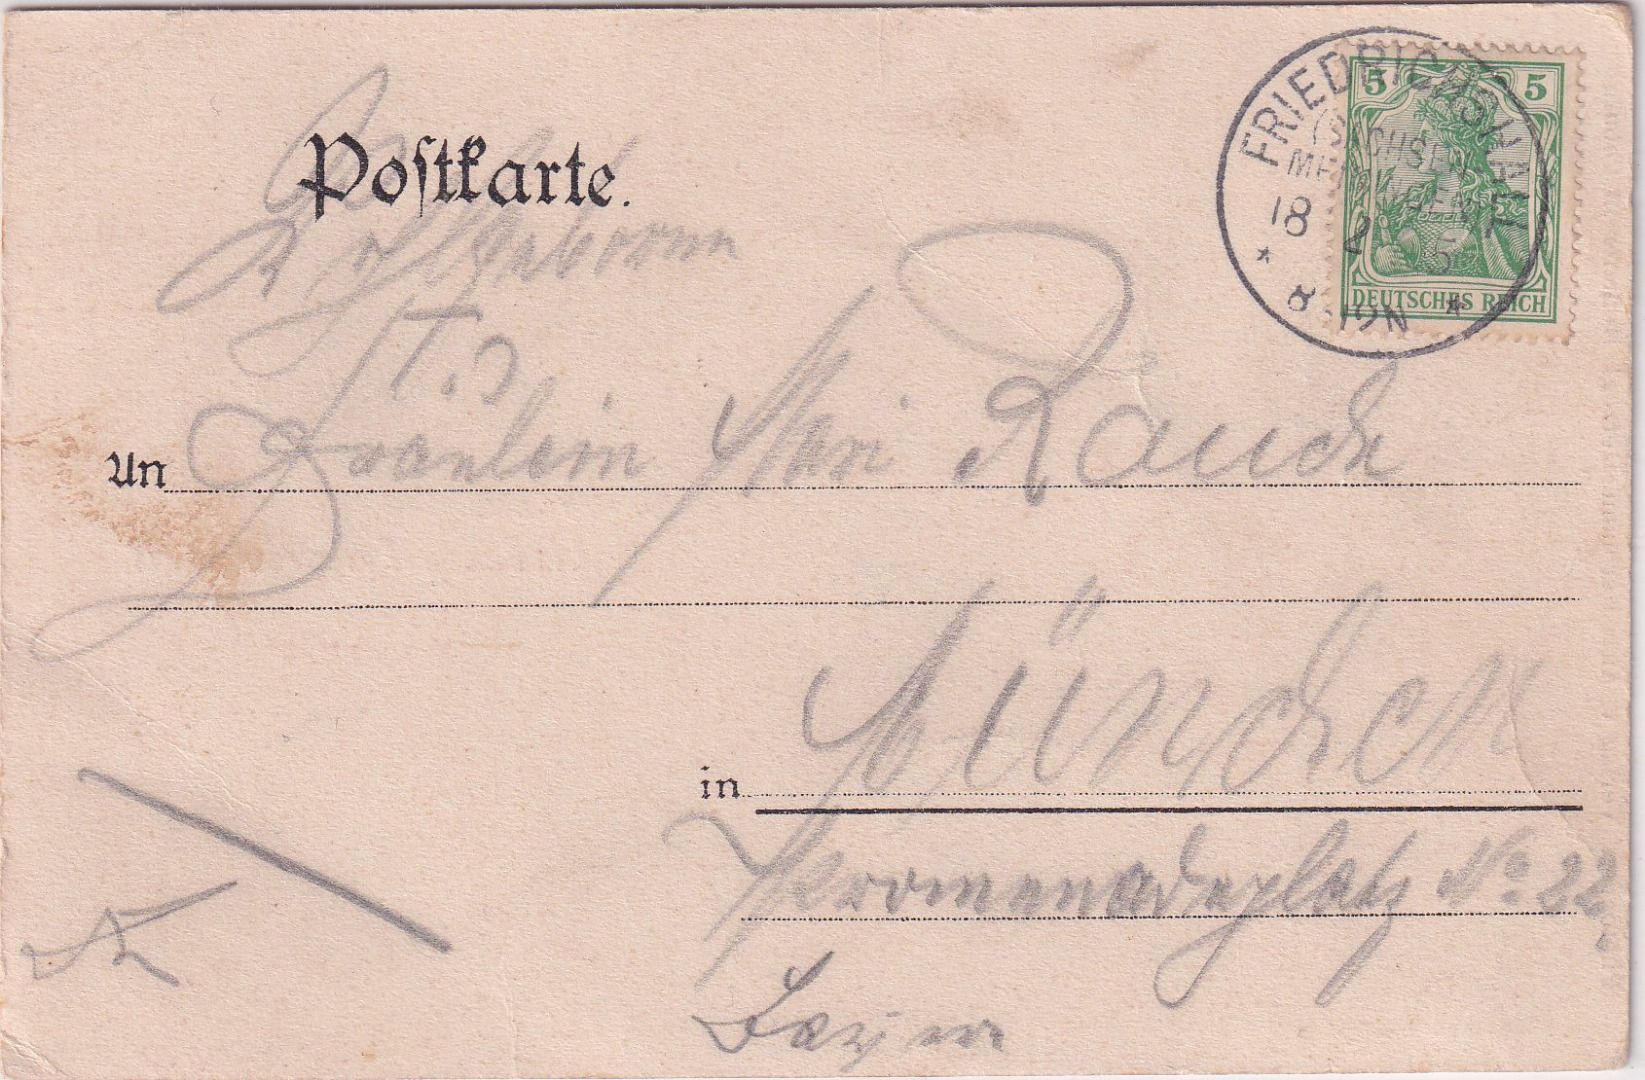 Postkarte.
FRIEDRICHSHALL
(SACHSEN
MEININGEN)
18 2 5
* 8-12N *
5 5
DEUTSCHES REICH
Hochwohlgeboren
An Fräulein Mari Rauch
in München
Promenadeplatz No 22.
Bayern